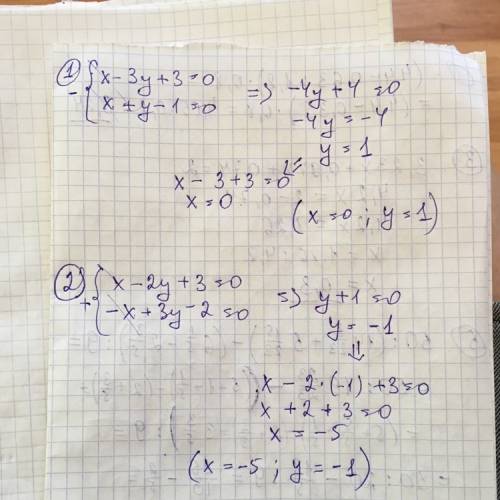 1 x - 3y + 3 = 0 => -4y + 4 = 0
- x + y - 1 = 0 -4y = -4
y = 1
x - 3 + 3 = 0
x = 0 (x = 0 ; y = 1)
2) x - 2y + 3 = 0 => y + 1 = 0
+ -x + 3y - 2 = 0 y = -1
⇓
x - 2 · (-1) + 3 = 0
x + 2 + 3 = 0
x = -5
(x = -5 ; y = -1)